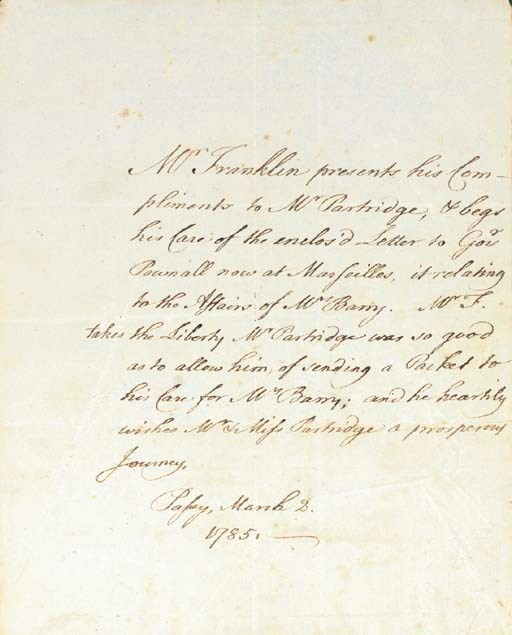 Mr Franklin presents his Com-
pliments to Mr Partridge, & begs
his Care of the enclos'd Letter to Govr
Pownall now at Marseilles, it relating
to the Affairs of Mrs Barry. Mr F.
takes the Liberty Mr Partridge was so good
as to allow him, of sending a Packet to
his Care for Mrs Barry; and he heartily
wishes Mr & Miss Partridge a prosperous
Journey,
Passy, March 2.
1785.